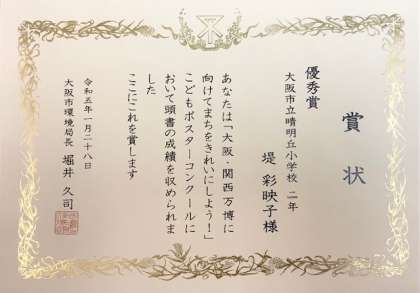 賞状
優秀賞
大阪市立晴明丘小学校 二年
堤 彩映子様
あなたは「大阪・関西万博に
向けてまちをきれいにしよう!」
こどもポスターコンクールに
おいて頭書の成績を収められま
した
ここにこれを賞します
令和五年一月二十八日
大阪市環境局長 堀井 久司